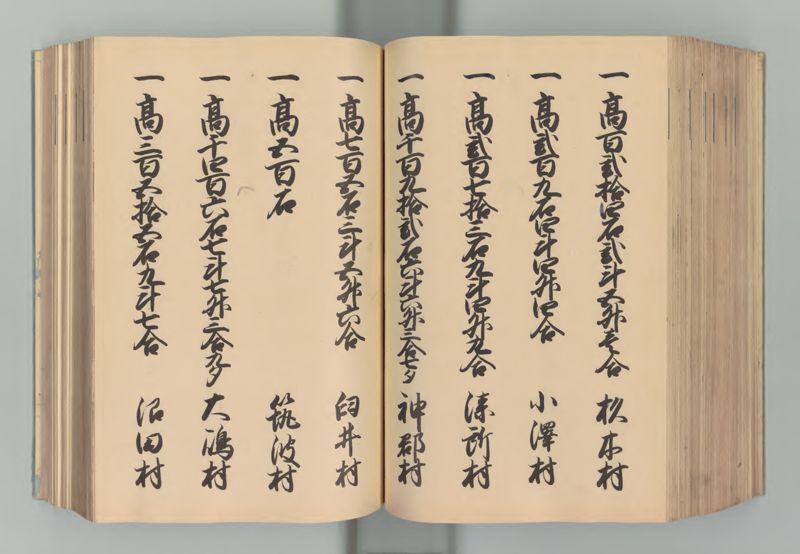 一 高百弐拾四石弐斗五升壱合 杉本村
一 高弐百九石四斗四升四合 小澤村
一 高弐百七拾三石九斗四升九合 漆所村
一 高千百九拾弐石六斗六升三合七夕 神郡村
一 高七百五石三斗五升六合 臼井村
一 高五百石 筑波村
一 高千四百六石七斗七升三合九夕 大嶋村
一 高三百五拾五石九斗七合 沼田村